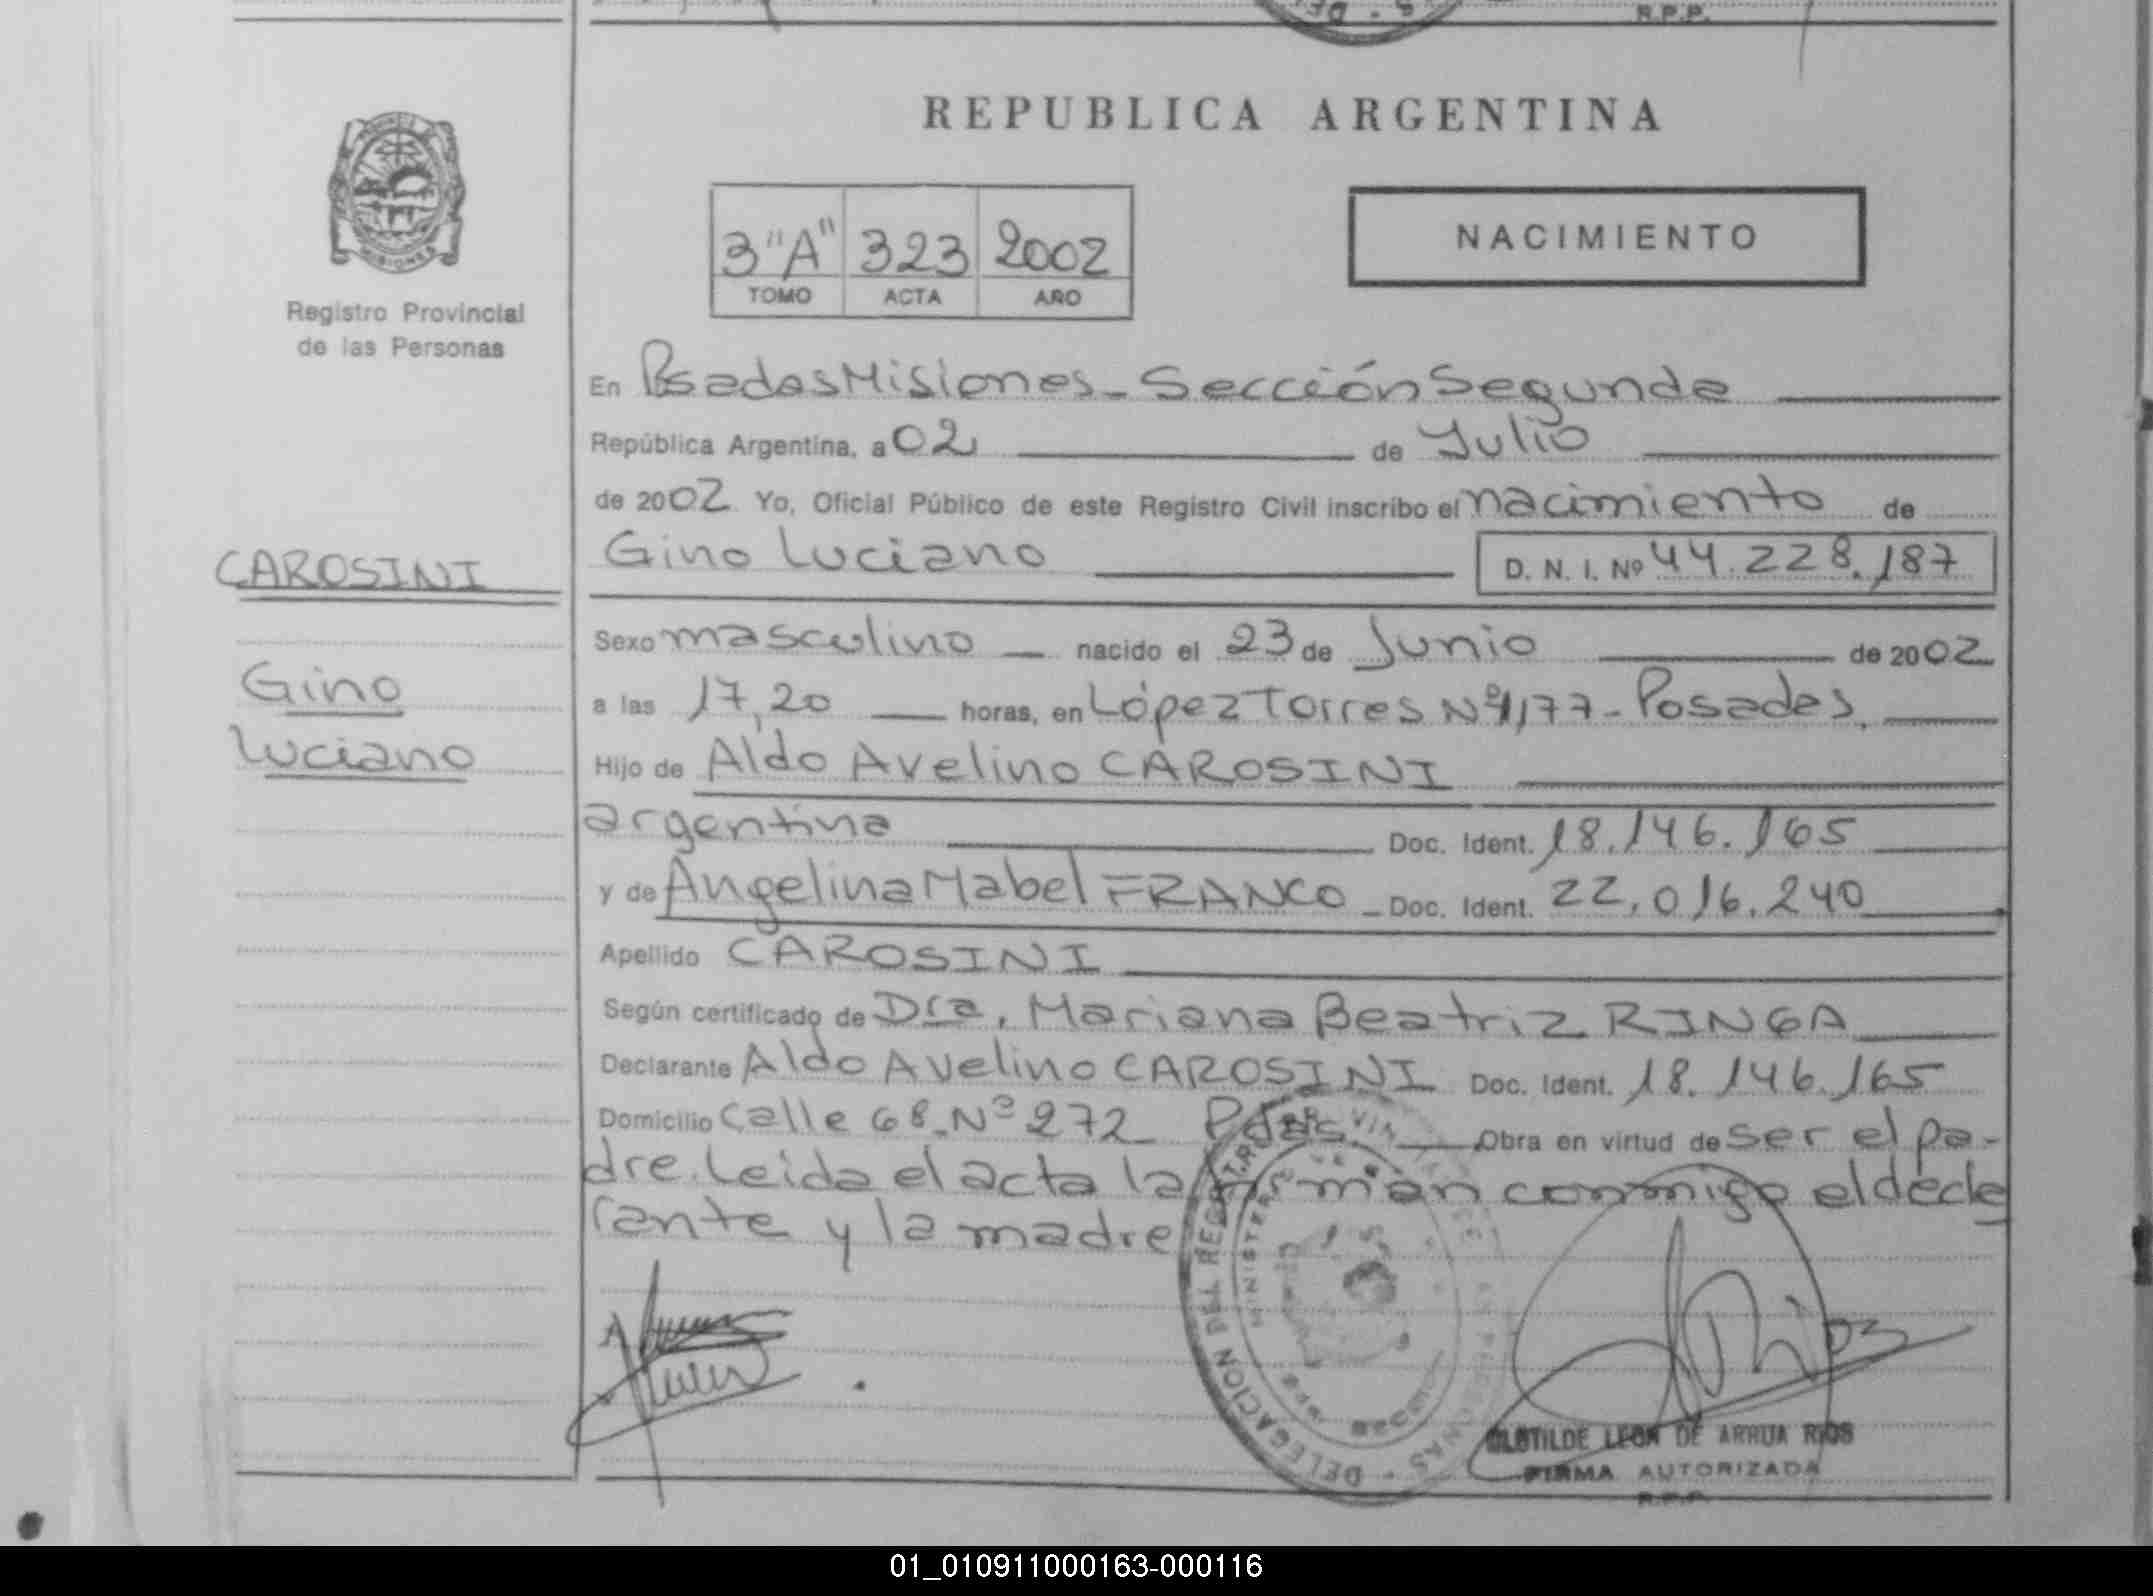 R.P.P.
REPUBLICA ARGENTINA
PROVINCIA DE
MISIONES
Registro Provincial
de las Personas
3"A" 323 2002
TOMO ACTA AÑO
NACIMIENTO
En Posadas Misiones - Sección Segunda
República Argentina, a 02 de Julio
de 2002 Yo, Oficial Público de este Registro Civil inscribo el nacimiento de
CAROSINI
Gino Luciano D. N. I. Nº 44.228.187
Sexo masculino nacido el 23 de Junio de 2002
Gino
a las 17,20 horas, en López Torres Nº 1177 - Posadas.
Luciano
Hijo de Aldo Avelino CAROSINI
argentina Doc. Ident. 18.146.165
y de Angelina Mabel FRANCO - Doc. Ident. 22.016.240
Apellido CAROSINI
Según certificado de Dra. Mariana Beatriz RINGA
Declarante Aldo Avelino CAROSINI Doc. Ident. 18.146.165
Domicilio Calle 68 - Nº 272 Pdas. Obra en virtud de ser el pa-
dre. Leida el acta la firman conmigo el decla
rante y la madre
DELEGACION DEL REGISTRO
MINISTERIO DE
CLOTILDE LEON DE ARRUA RIOS
FIRMA AUTORIZADA
R.P.P.
01_010911000163-000116